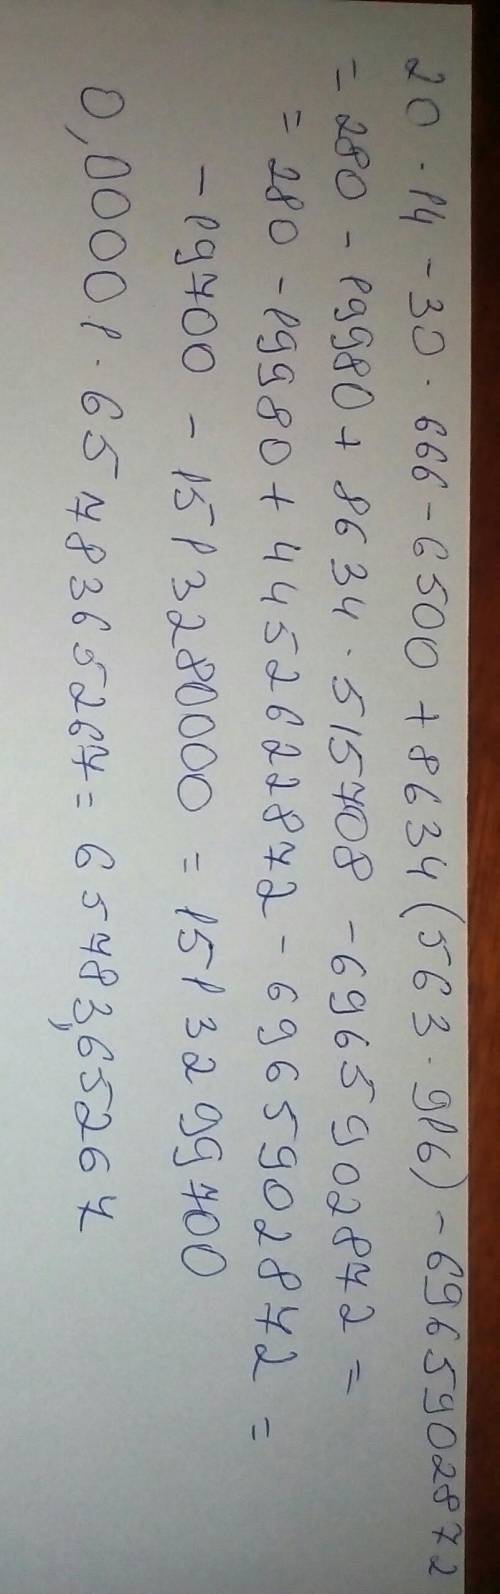 20 · 14 - 30 · 666 - 6500 + 8634 (563 · 916) - 6965902872
= 280 - 19980 + 8634 · 515708 - 6965902872 =
= 280 - 19980 + 4452622872 - 6965902872 =
- 19700 - 1513280000 = 1513299700
0,00001 · 65748365267 = 65483,65267